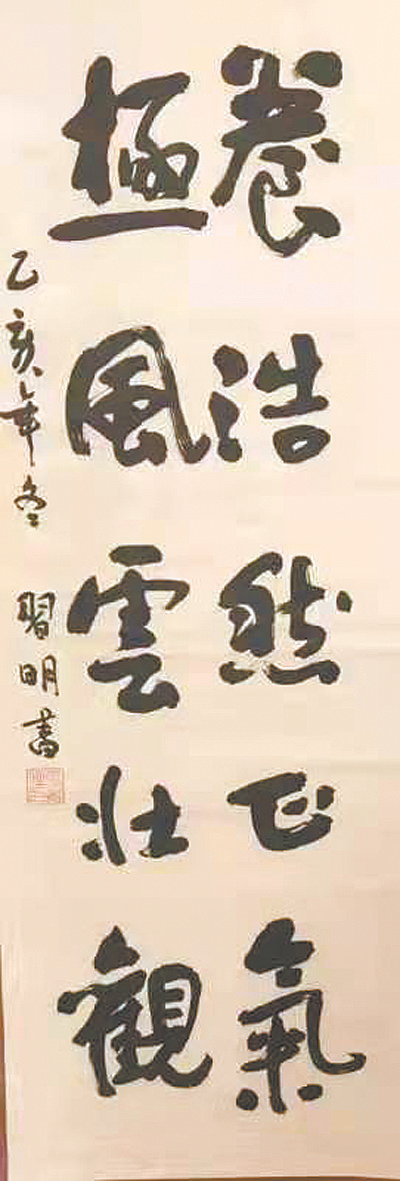 養浩然正氣
極風雲壯觀
乙亥年冬 習明書